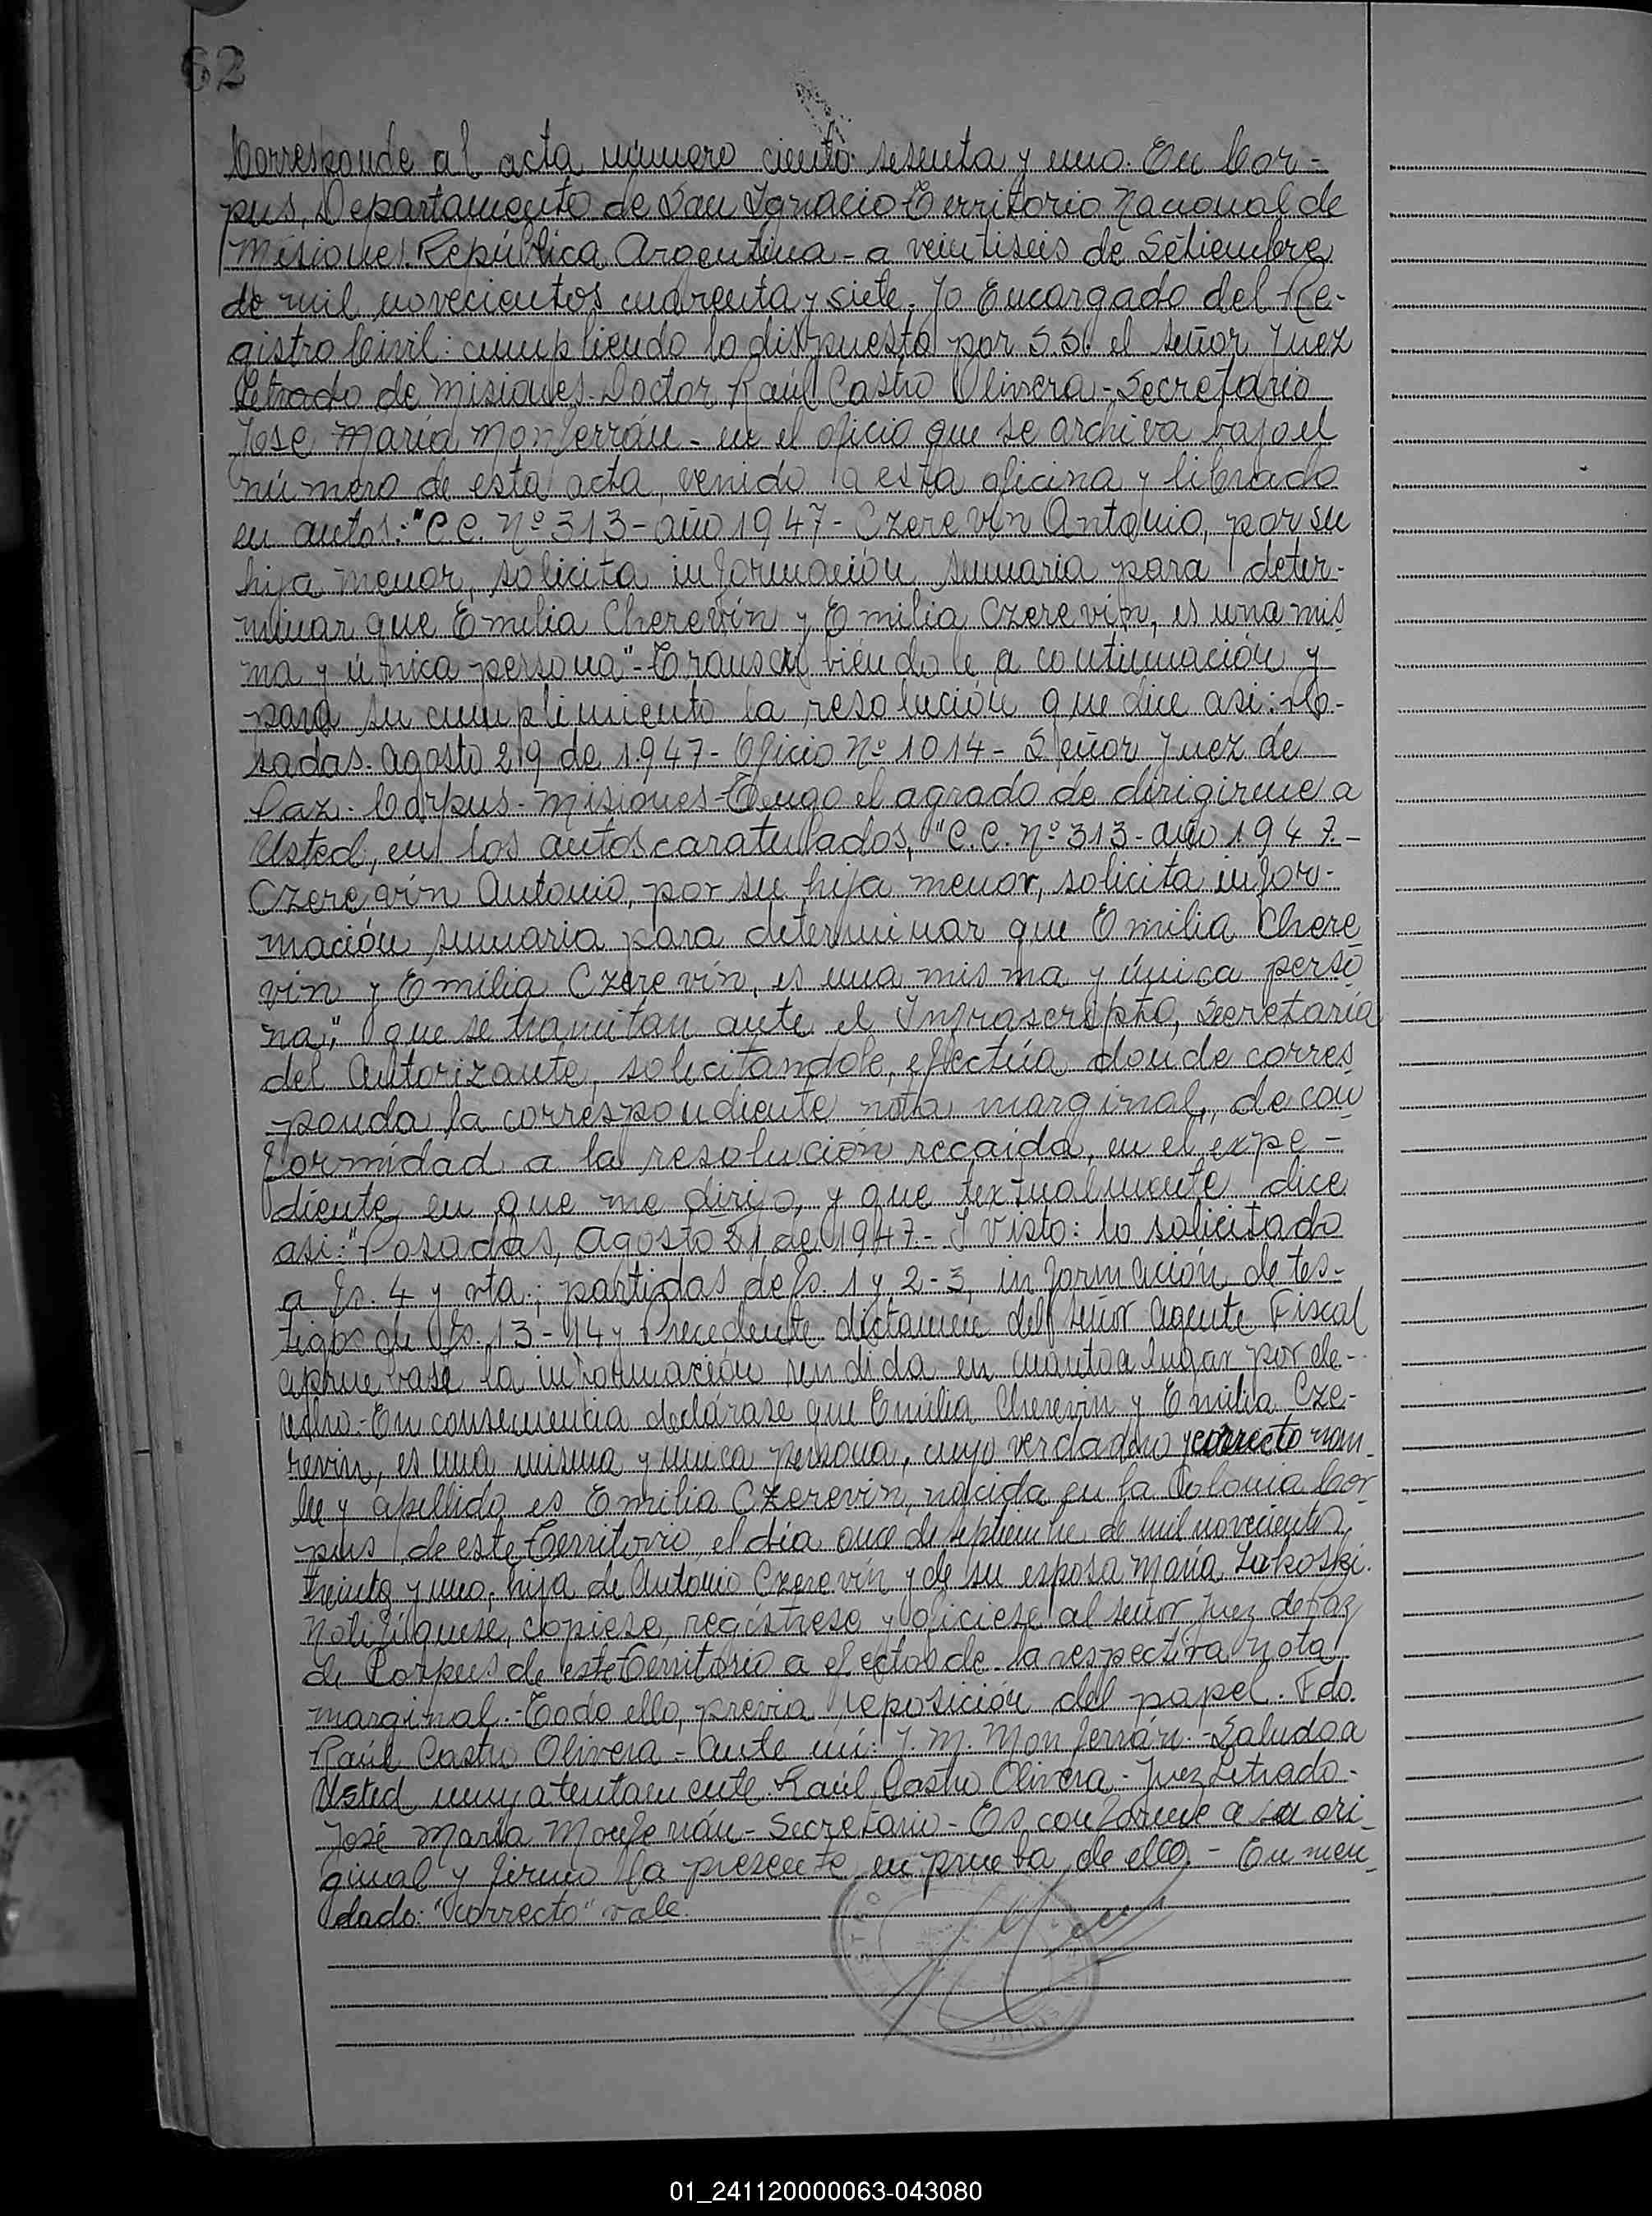 62
Corresponde al acta número ciento sesenta y uno. En Cor-
pus, Departamento de San Ignacio Territorio Nacional de
Misiones. República Argentina - a veintiseis de Setiembre
de mil novecientos cuarenta y siete. Yo Encargado del Re-
gistro Civil: cumpliendo lo dispuesto por S.S. el señor Juez
Letrado de Misiones. Doctor Raúl Castro Olivera - Secretario
José María Monferrán - en el oficio que se archiva bajo el
número de esta acta, venido a esta oficina y librado
en autos: "C.C. Nº 313 - año 1947 - Czerevin Antonio, por su
hija menor, solicita información sumaria para deter-
minar que Emilia Cherevín y Emilia Czerevin, es una mis
ma y única persona" - Transcribiendole a continuación y
para su cumplimiento la resolución que dice asi: Po-
sadas. Agosto 29 de 1947 - Oficio Nº 1014 - Señor Juez de
Paz. Corpus - Misiones - Tengo el agrado de dirigirme a
Usted, en los autos caratulados, "C.C. Nº 313 - año 1947. -
Czerevín Antonio, por su hija menor, solicita infor-
mación sumaria para determinar que Emilia Chere
vin y Emilia Czerevín, es una misma y única perso
na", que se tramitan ante el Infrascripto, Secretaría
del Autorizante, solicitandole, efectúa donde corres
ponda la correspondiente nota marginal, de con
formidad a la resolución recaida, en el expe-
diente en que me dirijo, y que textualmente dice
asi: "Posadas, Agosto 21 de 1947. - Y Visto: lo solicitado
a fs. 4 y vta.; partidas de fs. 1 y 2-3, información de tes-
tigos de fs. 13-14 y Precedente dictamen del señor Agente Fiscal
apruebase la información rendida en cuanto a lugar por de-
recho. - En consecuencia declarase que Emilia Cherevin y Emilia Cze-
revin, es una misma y unica persona, cuyo verdadero y correcto nom-
bre y apellido es Emilia Czerevin, nacida en la Colonia Cor
pus de este Territorio, el día once de septiembre de mil novecientos
treinta y uno, hija de Antonio Czerevín y de su esposa María Zukoski.
Notifíquese, copiese, regístrese y oficiese al señor Juez de Paz
de Corpus de este Territorio a efectos de la respectiva nota
marginal. - Todo ello, previa reposición del papel. Fdo.
Raúl Castro Olivera - Ante mí: J. M. Monferrán. - Saludo a
Usted muy atentamente. Raúl Castro Olivera - Juez Letrado -
José María Monferrán - Secretario - Es conforme a su ori
ginal y firmo la presente en prueba de ello - Enmen
dado: "correcto" vale.
01_241120000063-043080